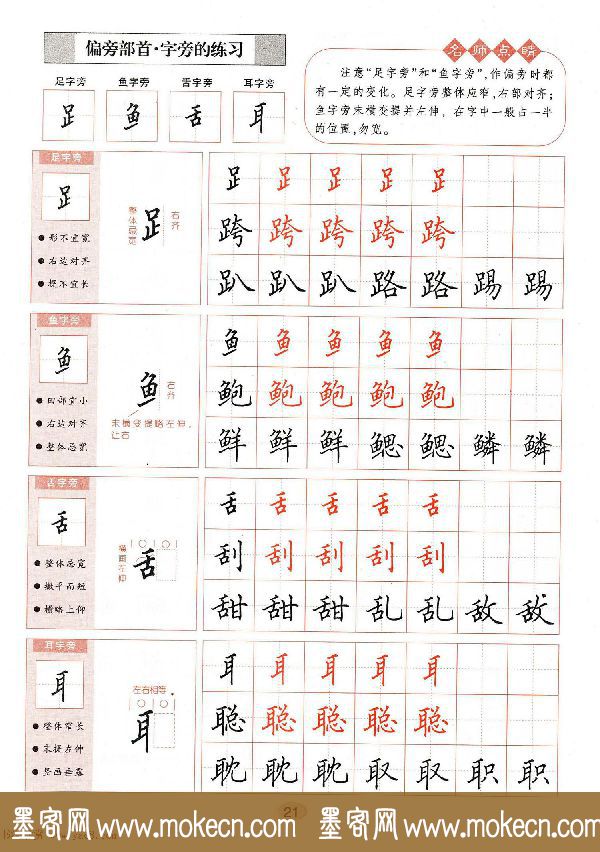 偏旁部首·字旁的练习
名师点睛
足字旁 鱼字旁 舌字旁 耳字旁
足 鱼 舌 耳
注意“足字旁”和“鱼字旁”,作偏旁时都
有一定的变化。足字旁整体应窄,右部对齐;
鱼字旁末横变提并左伸,在字中一般占一半
的位置,勿宽。
足字旁
足
形不宜宽
右边对齐
提不宜长
整体忌宽
右齐
足
足 足 足 足 足
跨 跨 跨 跨 跨
趴 趴 趴 路 路 踢 踢
鱼字旁
鱼
田部宜小
右边对齐
整体忌宽
鱼
右齐
末横变提略左伸,
让右
鱼 鱼 鱼 鱼 鱼
鲍 鲍 鲍 鲍 鲍
鲜 鲜 鲜 鳃 鳃 鳞 鳞
舌字旁
舌
整体忌宽
撇平而短
横略上仰
横画左伸
舌
舌 舌 舌 舌 舌
刮 刮 刮 刮 刮
甜 甜 甜 乱 乱 敌 敌
耳字旁
耳
整体窄长
末提左伸
竖画垂露
左右相等
耳
耳 耳 耳 耳 耳
聪 聪 聪 聪 聪
耽 耽 耽 取 取 职 职
21
墨客网 www.mokecn.com 墨客网 www.mokecn.com